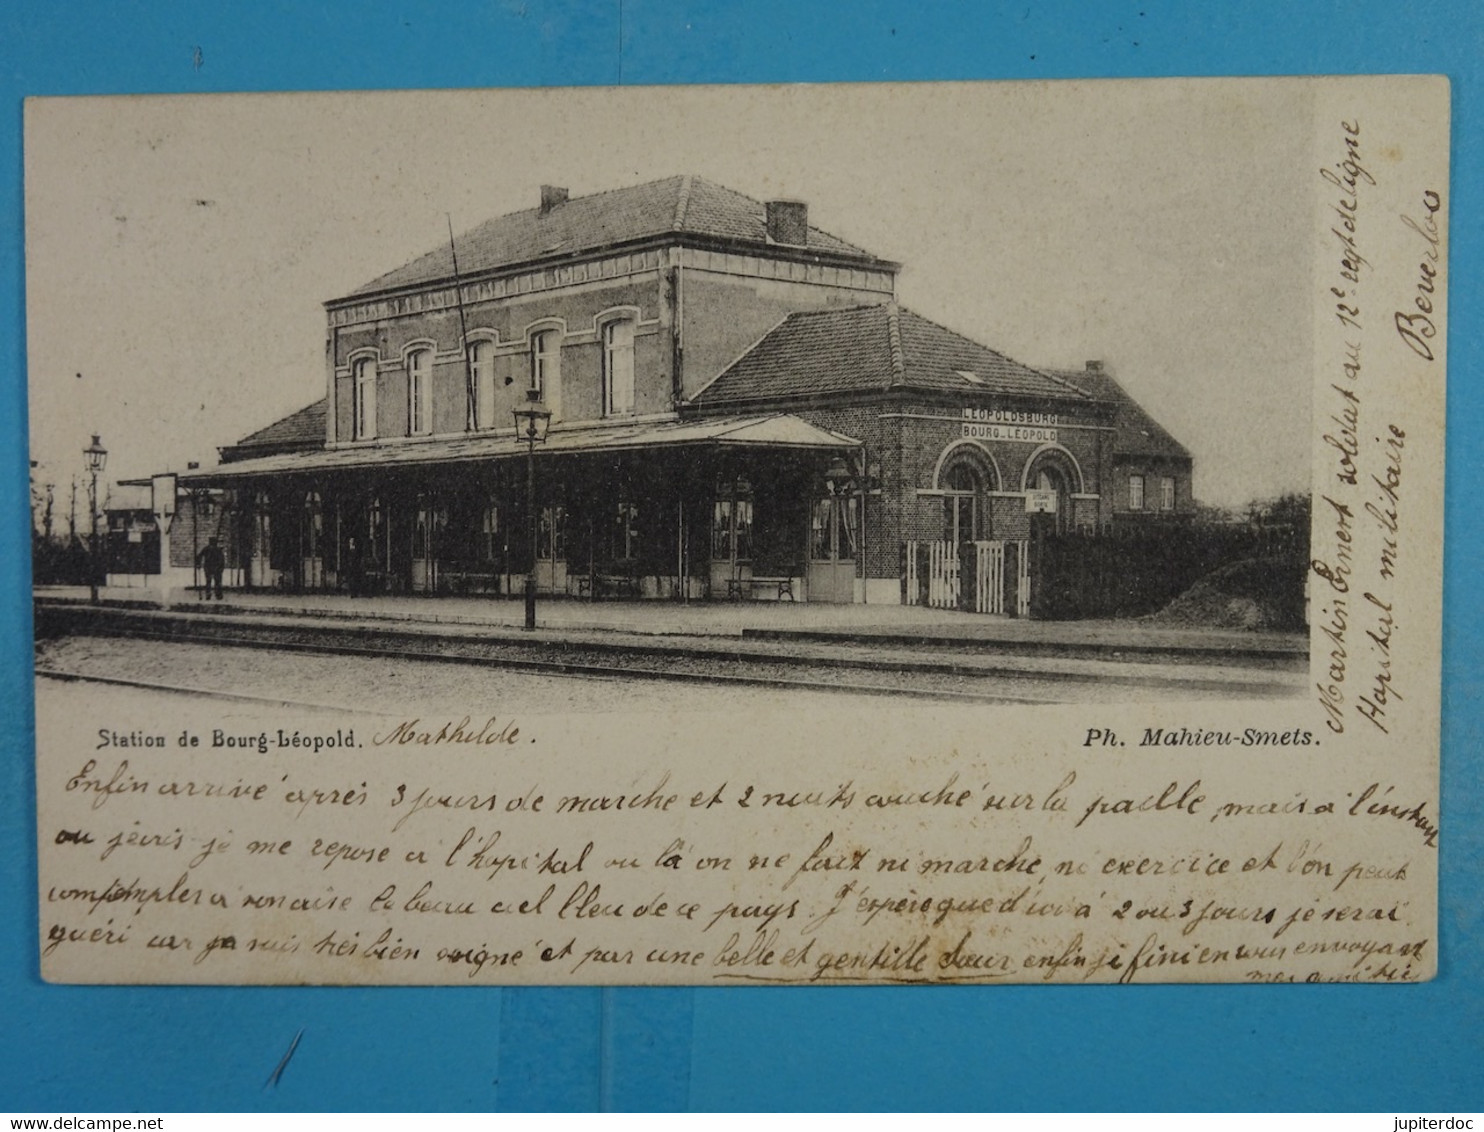 LEOPOLDSBURG
BOURG-LÉOPOLD
Station de Bourg-Léopold.
Mathilde.
Ph. Mahieu-Smets.
Enfin arrivé après 3 jours de marche et 2 nuits couché sur la paelle, mais à l'instant
ou j'eiris je me repose a l'hopital ou là on ne fait ni marche, ni exercice et l'on peut
compempler a son aise le beau ciel bleu de ce pays. J'éspère que d'ici à 2 ou 3 jours je serai
guéri car je suis très bien soigné et par une belle et gentille Soeur enfin je fini en vous envoyant
mes amitiés
Martin Ernest soldat au 12e regt de ligne
Hopital militaire Beverloo
www.delcampe.net
jupiterdoc